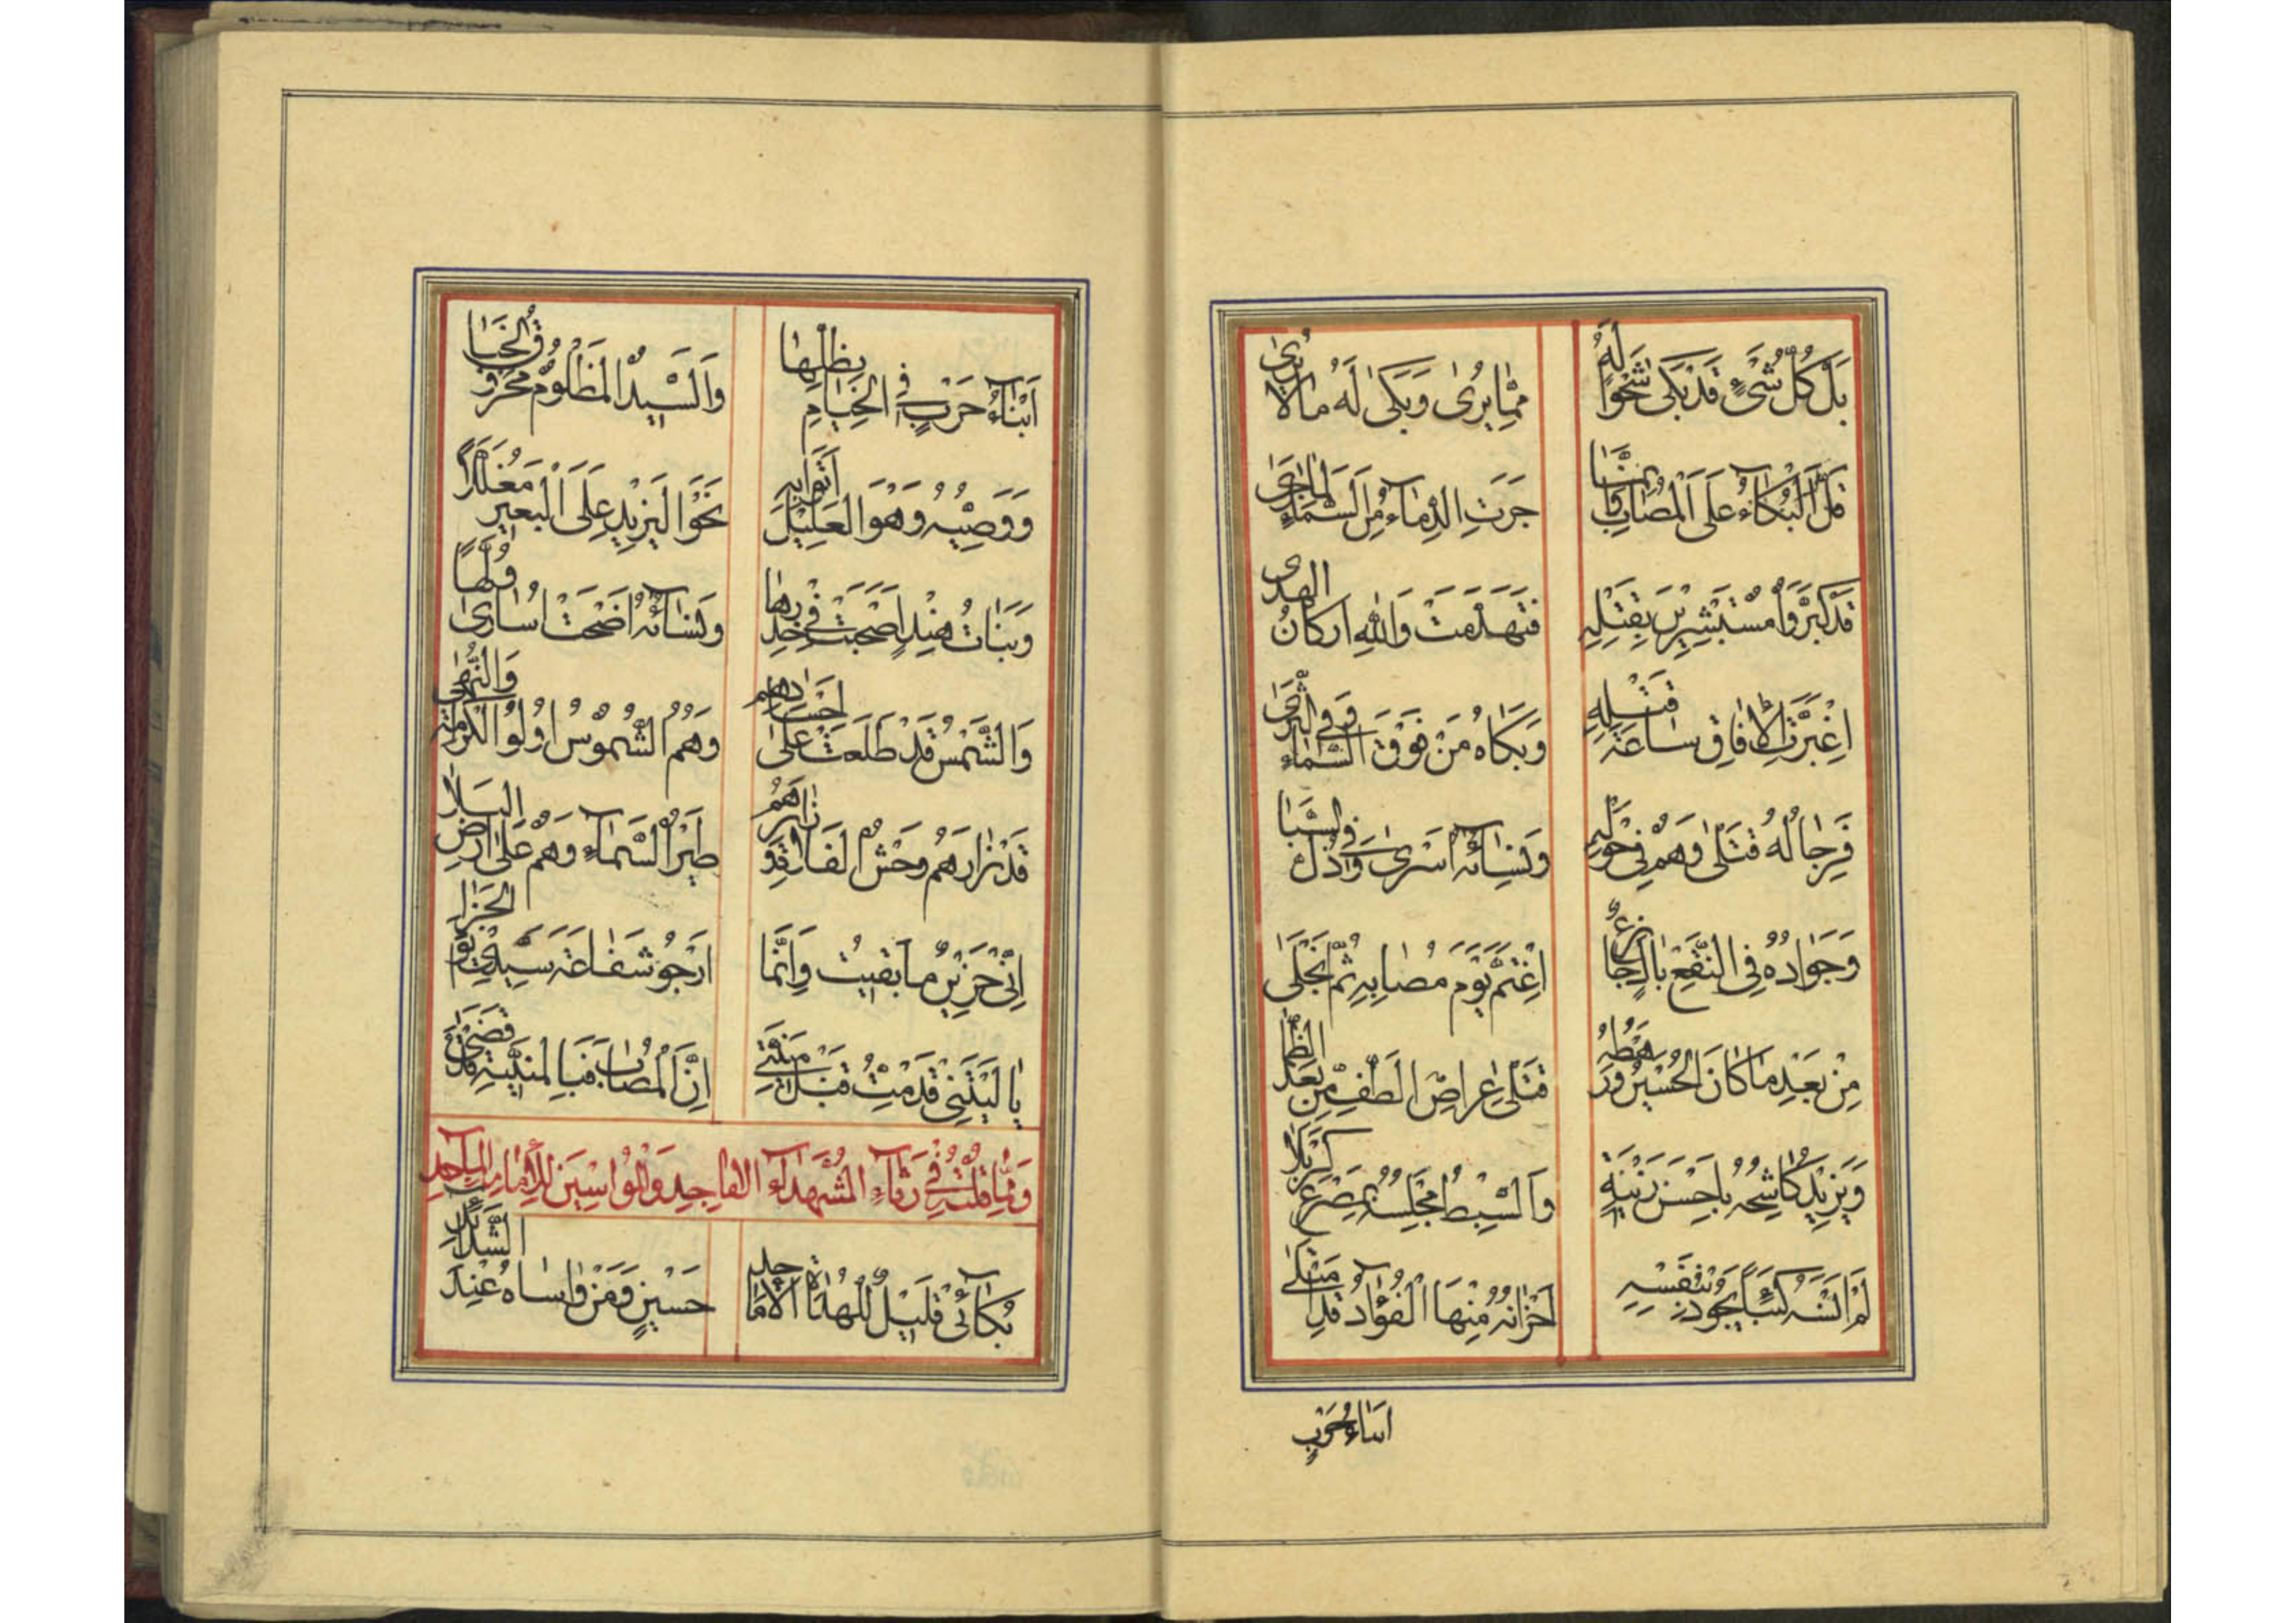 بَلْ كُلُّ شَيْءٍ قَدْ بَكىٰ شَجْوًا لَهُ مِمّا يُرىٰ وَبَكىٰ لَهُ ما لا يُرىٰ
قَلَّ الْبُكاءُ عَلَى الْمُصابِ جَرَتِ الدِّماءُ مِنَ السَّماءِ لِما جَرىٰ
قَدْ كَبَّرُوا مُسْتَبْشِرِينَ بِقَتْلِهِ فَتَهَدَّمَتْ وَاللهِ اركانُ الهدى
اغْبَرَّتِ الْآفاقُ ساعَةَ قَتْلِهِ وَبَكاهُ مَنْ فَوْقَ السَّماءِ وَفِي الثَّرىٰ
فَرِجالُهُ قَتْلىٰ وَهُمْ فِي حَوْلِهِ وَنِسائُهُ اَسْرىٰ وَفِي ذُلِّ السَّبا
وَجَوادُهُ فِي النَّقْعِ اغْتَمَّ يَوْمَ مُصابِهِ ثُمَّ انْجَلىٰ
مِنْ بَعْدِ ما كانَ الْحُسَيْنُ وَرَهْطُهُ قَتْلىٰ عِراصِ الطَّفِّ مِنْ بَعْدِ الظَّما
وَيَزِيدُ كاشِحُهُ بِاَحْسَنِ زِينَةٍ وَالسِّبْطُ مَجْلِسُهُ بِمَصْرَعِ كَرْبَلا
لَمْ اَنْسَهُ يَجُودُ بِنَفْسِهِ اَحْزانُهُ مِنْهَا الْفُؤادُ قَدِ مْتَلىٰ
ابناءُ حَرْبٍ
اَبْناءُ حَرْبٍ فِي الْخِيامِ بِظِلِّها وَالسَّيِّدُ الْمَظْلُومُ مَحْرُوقُ الْخَبا
وَوَصِيُّهُ وَهُوَ الْعَلِيلُ نَحْوَ الْيَزِيدِ عَلَى الْبَعِيرِ
وَبَناتُ هِنْدٍ اَصْبَحَتْ فِي خِدْرِها وَنِسائُهُ اَضْحَتْ اُسارىٰ
وَالشَّمْسُ قَدْ طَلَعَتْ عَلىٰ اَجْسادِهِم وَهُمُ الشُّمُوسُ اُولُوا الْكَرامَةِ وَالنُّهىٰ
قَدْ زارَهُم وَحْشُ الفَلا طَيْرُ السَّماءِ وَهُمْ عَلىٰ اَرْضِ الْبَلا
اِنِّي حَزِينٌ ما بَقِيتُ وَاِنَّما اَرْجُو شَفاعَةَ سَيِّدِي يَوْمَ الْجَزا
يا لَيْتَنِي قَدْ مِتُّ قَبْلَ مَنِيَّتِي اِنَّ الْمُصابَ
وَمِمّا قُلْتُ فِي رِثاءِ الشُّهَداءِ الاماجِدِ وَالْمُواسِينَ لِلْاِمامِ
بُكائِي قَلِيلٌ لِلْهُداةِ الْاَماجِدِ حُسَيْنٍ وَمَنْ واساهُ عِنْدَ الشَّدائِدِ